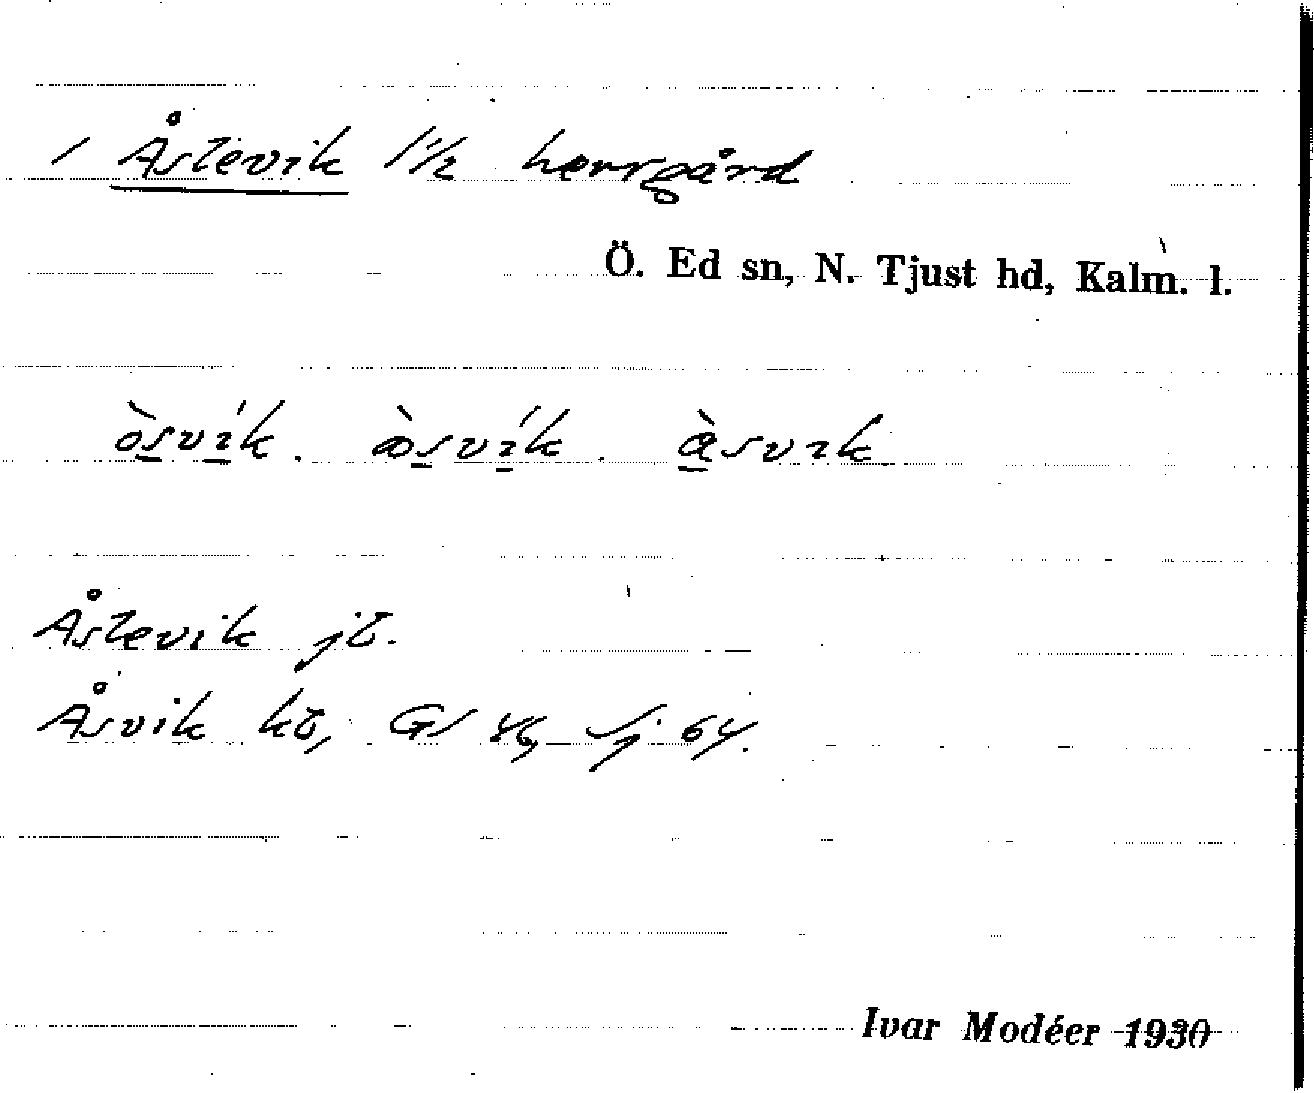 / Åslevik 1 1/2 herrgård
Ö. Ed sn, N. Tjust hd, Kalm. l.
òsvík. æ̀svík. àsvık
Åslevik jb.
Åsvik kb, GS 46, Sj 64.
Ivar Modéer 1930